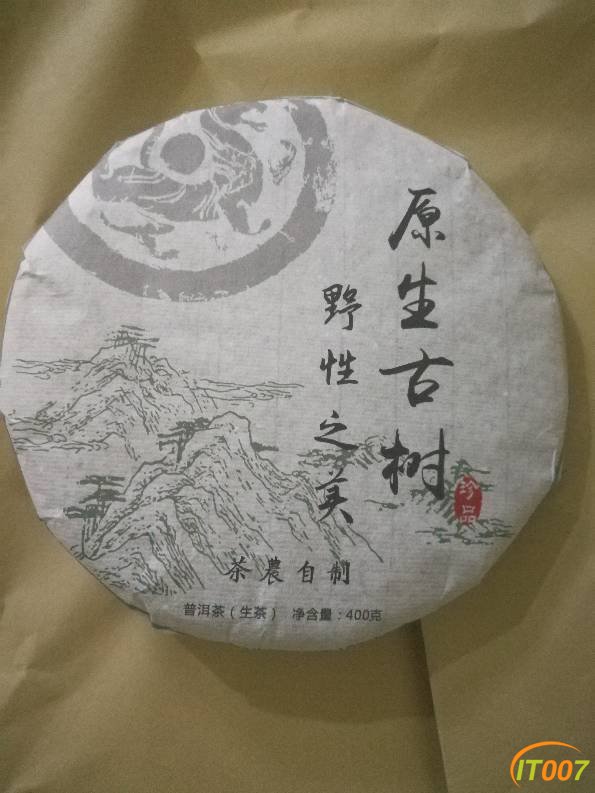 原生古树
野性之美
珍品
茶農自制
普洱茶（生茶） 净含量：400克
IT007